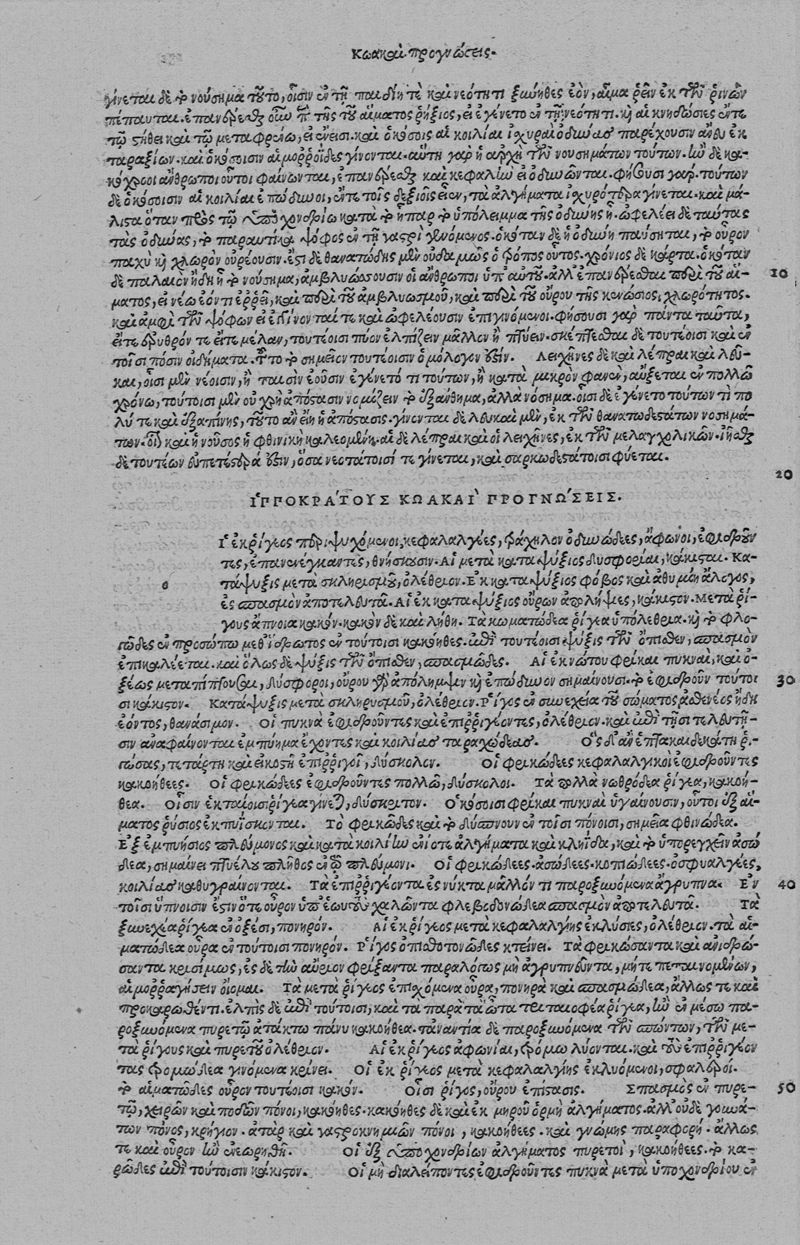 Κωακαὶ προγνώσεις.
γίνεται δὲ τὸ νούσημα τοῦτο, οἷσιν ἐν τῇ παιδίῃ τε καὶ νεότητι ξύνηθες ἐὸν, αἷμα ῥεῖν ἐκ τῶν ῥινῶν
πέπαυται. ἐπανερέσθαι οὖν τῆς τοῦ αἵματος ῥήξιος, εἰ ἐγένετο ἐν τῇ νεότητι. καὶ αἱ κνηδώσιες ἐν τε
τῷ στήθει καὶ τῷ μεταφρένῳ, εἰ ἔνεισι. καὶ ὁκόσοις αἱ κοιλίαι ἰσχυρὰς ὀδύνας παρέχουσιν ἄνευ ἐκ
ταραξίων. καὶ ὁκόσοισιν αἱμοῤῥοΐδες γίνονται. αὕτη γὰρ ἡ ἀρχὴ τῶν νουσημάτων τούτων. ἢν δὲ κα-
κόχροοι ἄνθρωποι οὗτοι φαίνωνται, ἐπανερέσθαι καὶ κεφαλὴν εἰ ὀδυνῶνται. φήσουσι γάρ. τούτων
δὲ ὁκόσοισιν αἱ κοιλίαι ἐπώδυνοι, ἐν τοῖς δεξιοῖς εἰσιν, τὰ ἀλγήματα ἰσχυρότερα γίνεται. καὶ μά-
λιστα ὅταν πρὸς τῷ ὑποχονδρίῳ κατὰ τὸ ἧπαρ τὸ ὑπόλειμμα τῆς ὀδύνης ᾖ. ὠφελέει δὲ ταύτας
τὰς ὀδύνας, τὸ παραυτίκα ψόφος ἐν τῇ γαστρὶ γενόμενος. ὁκόταν δὲ ἡ ὀδύνη παύσηται, τὸ οὖρον
παχὺ καὶ χλωρὸν οὐρέουσιν. ἔστι δὲ θανατώδης μὲν οὐδαμῶς ὁ τρόπος οὗτος. χρόνιος δὲ κάρτα. ὁκόταν
δὲ παλαιὸν ἤδη ᾖ τὸ νούσημα, ἀμβλυώσσουσιν οἱ ἄνθρωποι ὑπ' αὐτοῦ. ἀλλ' ἐπανερέσθαι περὶ τοῦ αἵ- 10
ματος, εἰ νέῳ ἐόντι ἐῤῥεῖ, καὶ περὶ τοῦ ἀμβλυωσμοῦ, καὶ περὶ τοῦ οὔρου τῆς κενώσιος, χλωρότητος.
καὶ ἀμφὶ τῶν ψόφων εἰ ἐγίνοντό τε καὶ ὠφέλεουσιν ἐπιγινόμενοι. φήσουσι γὰρ πάντα ταῦτα,
εἴτε ἐρυθρὸν τε εἴτε μέλαν, τουτέοισι πῦον ἐλπίζειν μᾶλλον ἢ πτύειν. σκέπτεσθαι δὲ τουτέοισι καὶ ἐν
τοῖσι πόσιν οἰδήματα. τοῦτο τὸ σημεῖον τουτέοισιν ὁμόλογόν ἐστιν. Λειχῆνες δὲ καὶ λέπραι καὶ λεῦ-
και, οἷσι μὲν νέοισιν, ἢ παισὶν ἐοῦσιν ἐγένετό τι τούτων, ἢ κατὰ μικρὸν φανὲν, αὔξεται ἐν πολλῷ
χρόνῳ, τούτοισι μὲν οὐ χρὴ ἀπόστασιν νομίζειν τὸ ἐξάνθημα, ἀλλὰ νόσημα. οἷσι δὲ ἐγένετο τούτων τι πο
λύ τε καὶ ἐξαπίνης, τοῦτο ἂν εἴη ἀπόστασις. γίνονται δὲ λεῦκαι μὲν, ἐκ τῶν θανατωδεστάτων νοσημά-
των. οἷον καὶ ἡ νοῦσος ἡ φθινικὴ καλεομένη. αἱ δὲ λέπραι καὶ οἱ λειχῆνες, ἐκ τῶν μελαγχολικῶν. ἰῆσθαι
δὲ τουτέων εὐπετέστερά ἐστιν, ὅσα νεωτάτοισί τε γίνεται, καὶ σαρκωδεστάτοισι φύεται.
20
ΙΠΠΟΚΡΑΤΟΥΣ ΚΩΑΚΑΙ ΠΡΟΓΝΩΣΕΙΣ.
Οἱ ἐκ ῥίγεος περιψυχόμενοι, κεφαλαλγέες, τράχηλον ὀδυνώδεες, ἄφωνοι, ἐφιδροῦν
τες, ἐπανενέγκαντες, θνήσκουσιν. Αἱ μετὰ καταψύξιος δυσφορίαι, κάκισται. Κα-
τάψυξις μετὰ σκληρυσμοῦ, ὀλέθριον. Ἐκ καταψύξιος φόβος καὶ ἀθυμίη ἄλογος,
ἐς σπασμὸν ἀποτελευτᾷ. Αἱ ἐκ καταψύξιος οὔρων ἀπολήψιες, κάκιστον. Μετὰ ῥί-
γους ἄγνοια κακὸν. κακὸν δὲ καὶ λήθη. Τὰ κωματώδεα ῥίγεα ὑπόλεθρα. καὶ τὸ φλο-
γῶδες ἐν προσώπῳ μεθ' ἱδρῶτος ἐν τούτοισι κακόηθες. ἐπὶ τουτέοισι ψύξις τῶν ὄπισθεν, σπασμὸν
ἐπικαλέεται. καὶ ὅλως δὲ ψύξις τῶν ὄπισθεν, σπασμῶδες. Αἱ ἐκ νώτου φρῖκαι πυκναὶ, καὶ ὀ-
ξέως μεταπίπτουσαι, δύσφοροι, οὔρου γὰρ ἀπόλημψιν καὶ ἐπώδυνον σημαίνουσι. τὸ ἐφιδροῦν τούτοι 30
σι κάκιστον. Κατάψυξις μετὰ σκληρυσμοῦ, ὀλέθριον. Ῥῖγος ἐν συνεχεῖ τοῦ σώματος ἀσθενέος ἤδη
ἐόντος, θανάσιμον. Οἱ πυκνὰ ἐφιδροῦντες καὶ ἐπιῤῥιγέοντες, ὀλέθριον. καὶ ἐπὶ τῇσι τελευτῇ-
σιν ἀναφαίνονται ἐμπύημα ἔχοντες καὶ κοιλίας ταραχώδεας.
τώσας, τετάρτῃ καὶ εἰκοστῇ ἐπιῤῥιγοῖ, δύσκολον. Οἱ φρικώδεες κεφαλαλγικοὶ ἐφιδροῦντες
κακοήθεες. Οἱ φρικώδεες ἐφιδροῦντες πολλῷ, δύσκολοι. Τὰ πολλὰ νωθρώδεα ῥίγεα, κακοή-
θεα. Οἷσιν ἑκταίοισι ῥίγεα γίνεται, δύσκριτον. Ὁκόσοισι φρῖκαι πυκναὶ ὑγιαίνουσιν, οὗτοι ἐξ αἵ-
ματος ῥύσιος ἐκπυΐσκονται. Τὸ φρικῶδες καὶ τὸ δύσπνουν ἐν τοῖσι πόνοισι, σημεῖα φθινώδεα.
Ἐξ ἐμπυήσιος πλεύμονος καὶ κατὰ κοιλίην ἐνίοτε ἀλγήματα καὶ κληῗδα, καὶ τὸ ὑπορέγχειν ἀσώ
δεα, σημαίνει πτυέλου πλῆθος ἐν τῷ πλεύμονι. Οἱ φρικώδεες. ἀσώδεες. κοπιώδεες. ὀσφυαλγέες,
κοιλίας καθυγραίνονται. Τὰ ἐπιῤῥιγέοντα ἐς νύκτα μᾶλλόν τι παροξυνόμενα ἄγρυπνα. Ἐν 40
τοῖσι ὕπνοισιν ἔστιν ὅτε οὖρον ὑφ' ἑωυτοὺς χαλῶντα φλεβοδονώδεα σπασμὸν ἀποτελευτᾷ. Τὰ
ξυνεχέα ῥίγεα ἐν ὀξέσι, πονηρόν. Αἱ ἐκ ῥίγεος μετὰ κεφαλαλγίης ἐκλύσιες, ὀλέθριον. τὰ αἱ-
ματώδεα οὖρα ἐν τούτοισι πονηρόν. Ῥῖγος ὀπισθοτονῶδες κτείνει. Τὰ φρικώσαντα καὶ ἀνιδρώ-
σαντα κρισίμως, ἐς δὲ τὴν αὔριον φρίξαντα παραλόγως μὴ ἀγρυπνεῦντα, μήτε πεπαινομένων,
αἱμοῤῥαγήσειν οἴομαι. Τὰ μετὰ ῥίγεος ἐπισχόμενα οὖρα, πονηρὰ καὶ σπασμώδεα, ἄλλως τε καὶ
προκαρωθέντι. ἐλπὶς δὲ ἐπὶ τούτοισι, καὶ τὰ παρὰ τὰ ὦτα.
ροξυνόμενα πυρετῷ ἀτάκτῳ πάνυ κακοήθεα.
τὰ ῥίγους καὶ πυρετοῦ ὀλέθριον. Αἱ ἐκ ῥίγεος ἀφωνίαι, τρόμῳ λύονται. καὶ τοὺς ἐπιῤῥιγέον
τας τρομώδεα γενόμενα κρίνει. Οἱ ἐκ ῥίγεος μετὰ κεφαλαλγίης ἐκλυόμενοι, σφαλεροί.
τὸ αἱματῶδες οὖρον τουτέοισι κακόν. Οἷσι ῥῖγος, οὔρου ἐπίστασις. Σπασμὸς ἐν πυρε- 50
τῷ, χειρῶν καὶ ποδῶν πόνοι, κακόηθες. κακόηθες δὲ καὶ ἐκ μηροῦ ὁρμὴ ἀλγήματος. ἀλλ' οὐδὲ γουνά-
των πόνος, κρήγιον. ἀτὰρ καὶ γαστροκνημιῶν πόνοι, κακοήθεες. καὶ γνώμης παραφορή. ἄλλως
τε καὶ οὖρον ἢν ἐνεωρηθῇ. Οἱ ἐξ ὑποχονδρίων ἀλγήματος πυρετοὶ, κακοήθεες. τὸ κα-
ρῶδες ἐπὶ τούτοισιν κάκιστον. Οἱ μὴ διαλείποντες ἐφιδροῦντες πυκνὰ μετὰ ὑποχονδρίου ἐν